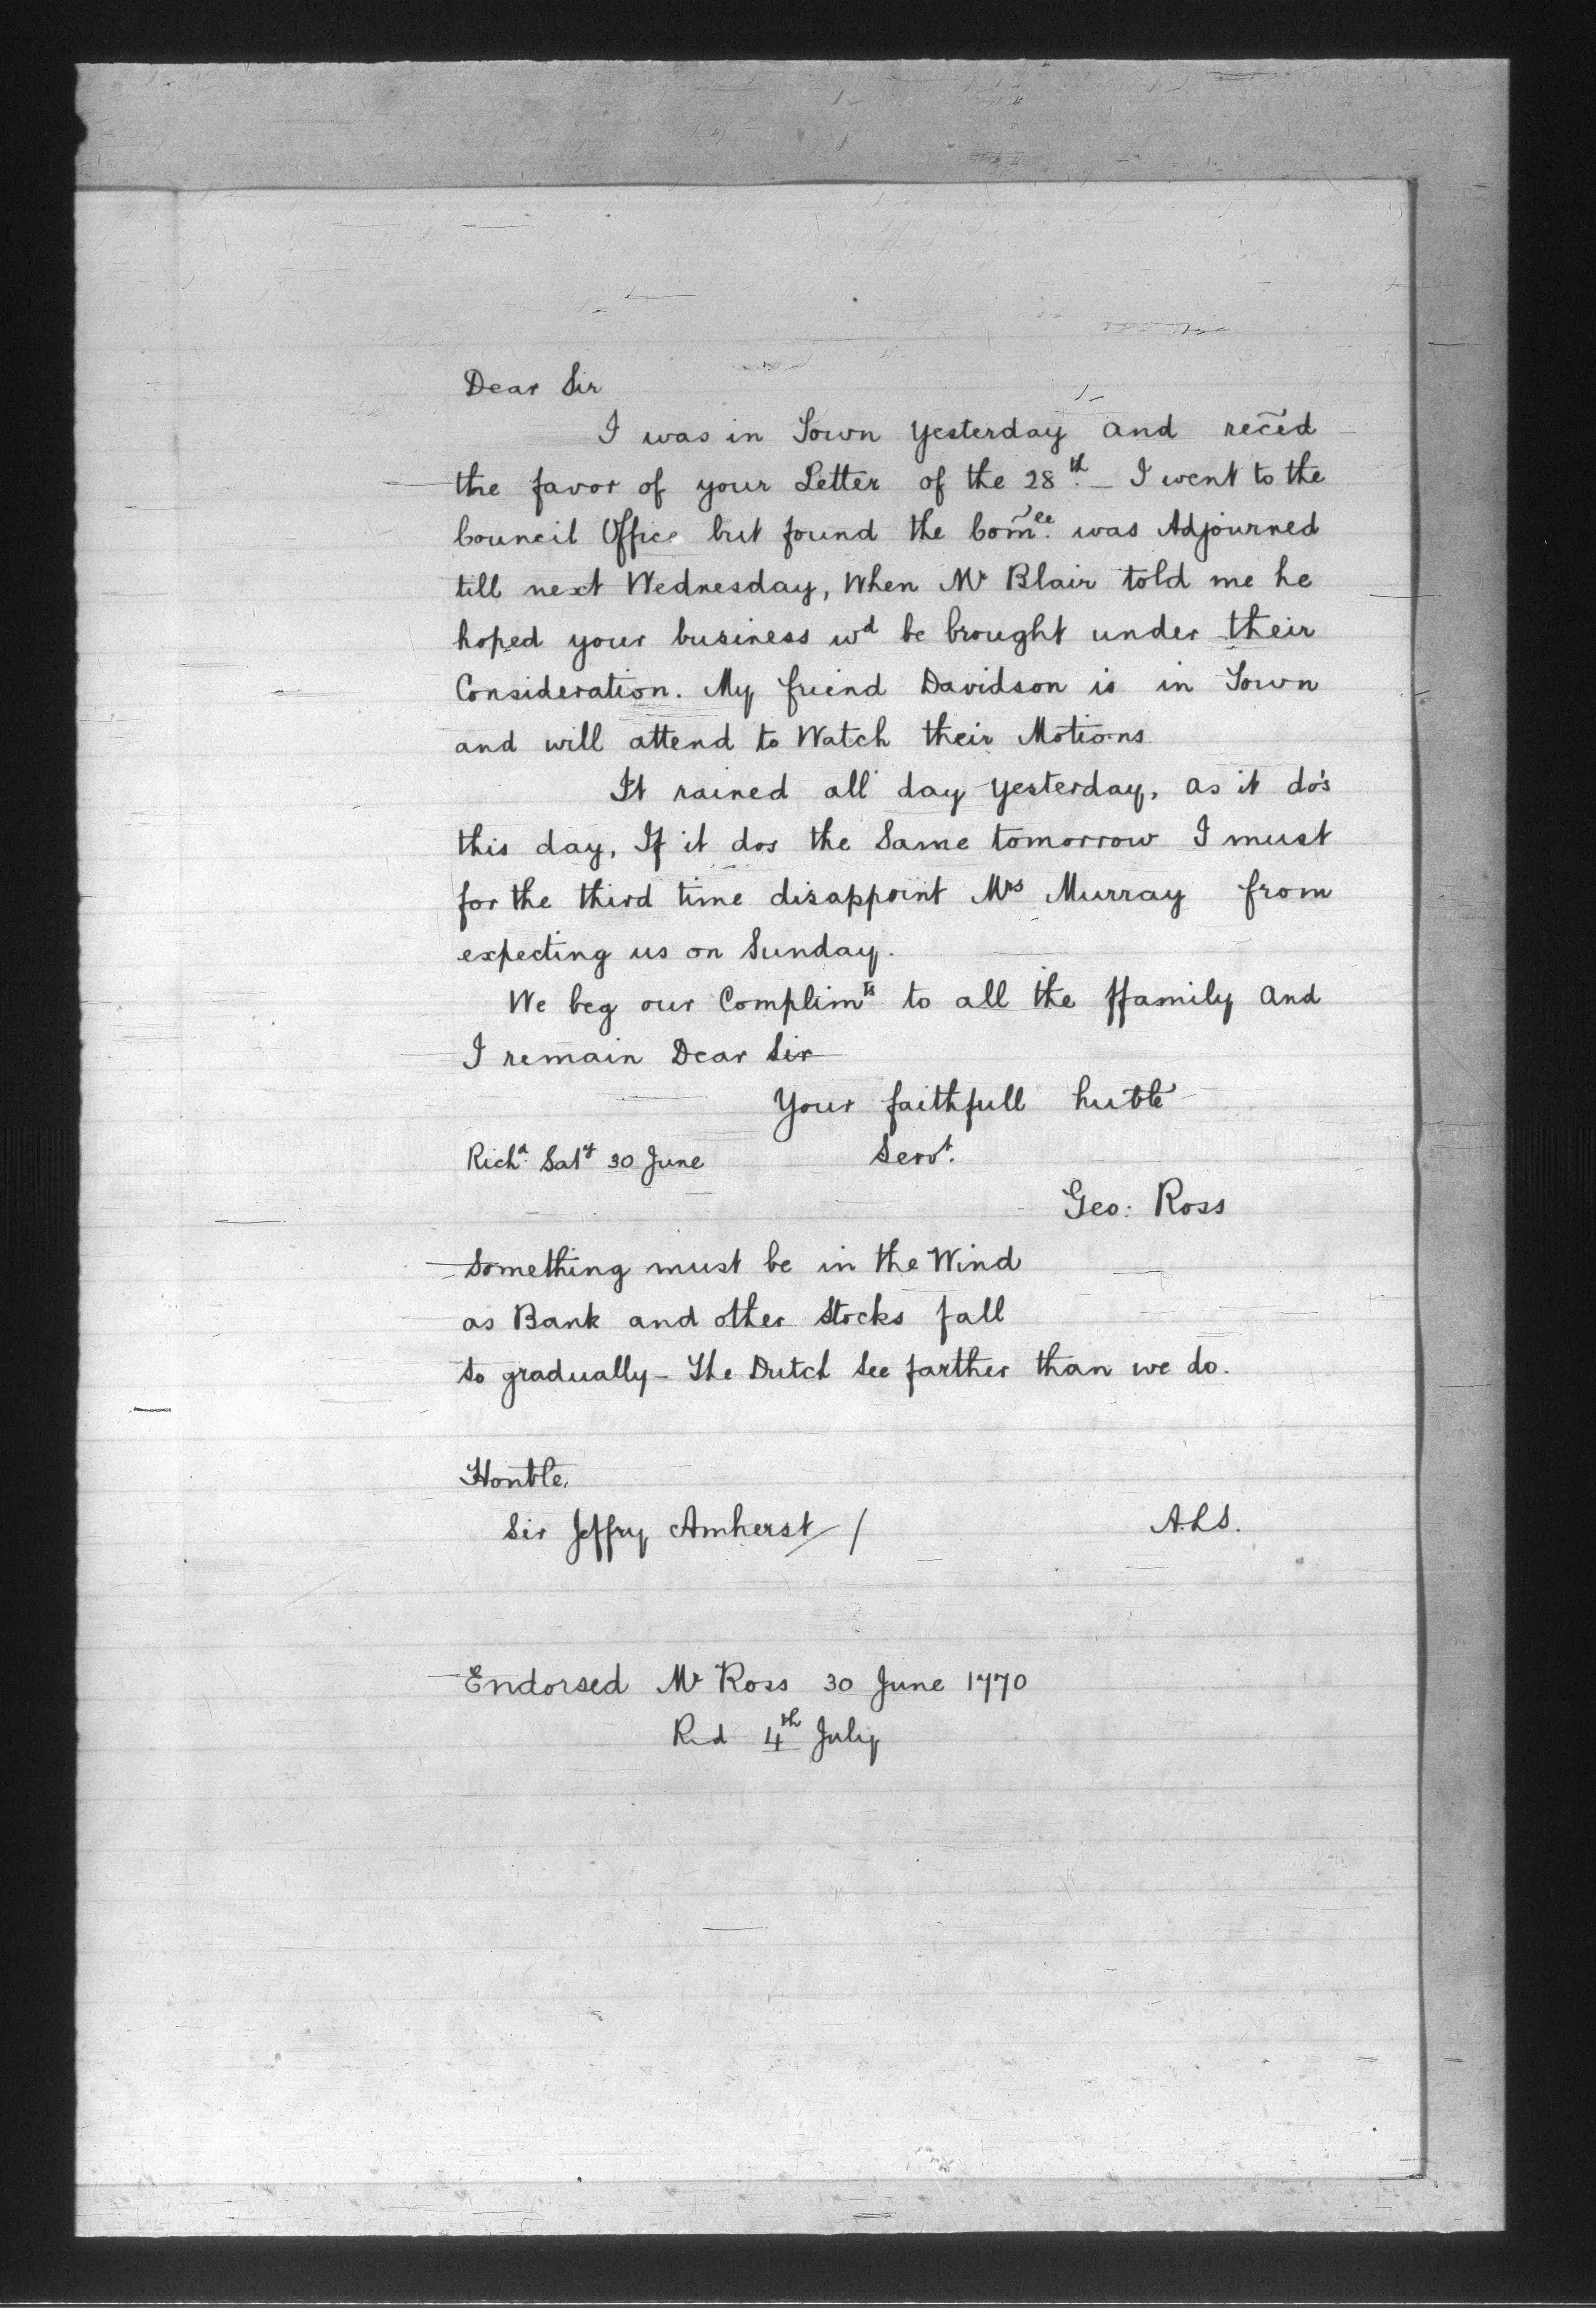 Dear Sir
I was in Town yesterday and rec̃ed
the favor of your Letter of the 28th. – I went to the
Council Office but found the Com̃ee. was Adjourned
till next Wednesday, When Mr Blair told me he
hoped your business wd be brought under their
Consideration. My friend Davidson is in Town
and will attend to Watch their Motions
It rained all day yesterday, as it do's
this day, If it dos the Same tomorrow I must
for the third time disappoint Mrs Murray from
expecting us on Sunday.
We beg our Complimts to all the ffamily and
I remain Dear Sir
Your faithfull huble
Richd. Saty 30 June Servt.
Geo: Ross
Something must be in the Wind
as Bank and other Stocks fall
so gradually – The Dutch see farther than we do.
Honble.
Sir Jeffry Amherst / A.L.S.
Endorsed Mr Ross 30 June 1770
Rd 4th July